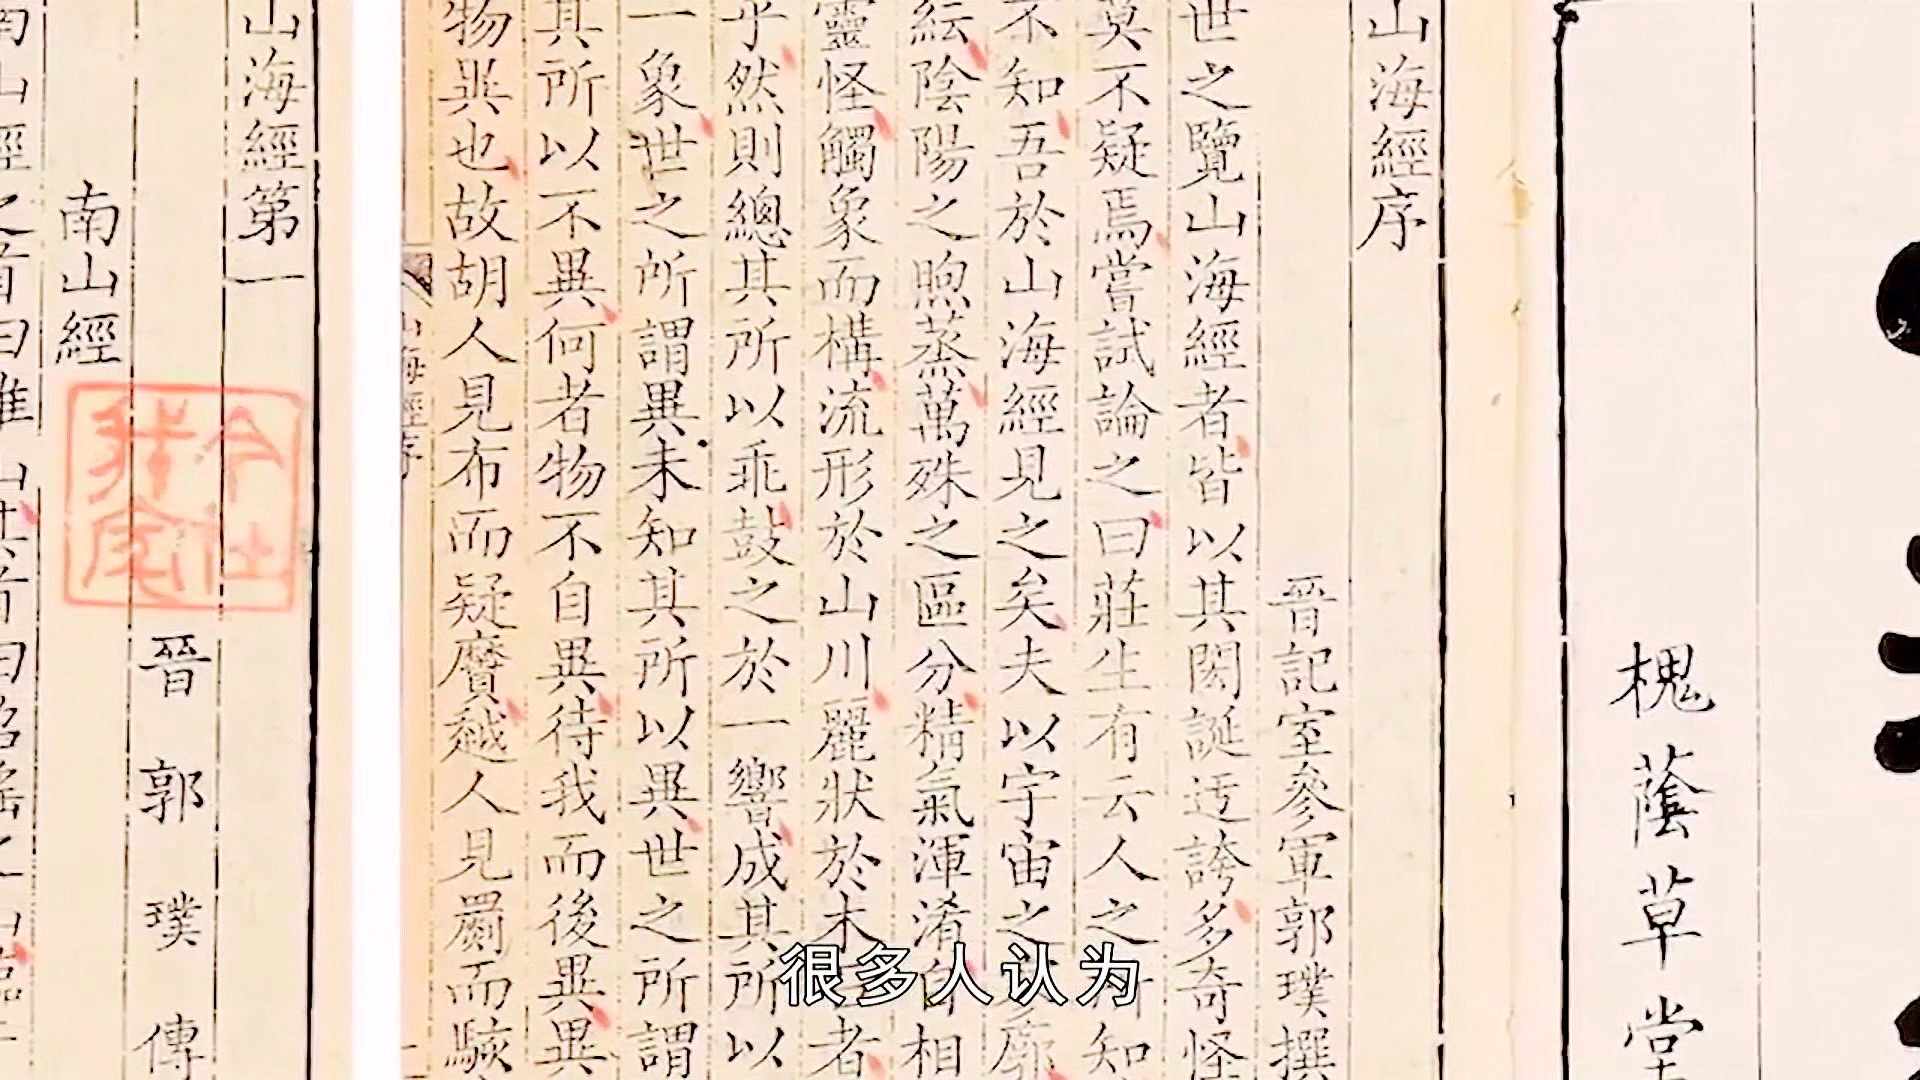 槐蔭草堂
山海經序
晉記室參軍郭璞撰
世之覽山海經者皆以其閎誕迂誇多奇怪
莫不疑焉嘗試論之曰莊生有云人之所知
不知吾於山海經見之矣夫以宇宙之寥
紜陰陽之煦蒸萬殊之區分精氣渾淆自相
靈怪觸象而構流形於山川麗狀於木者
乎然則總其所以乖鼓之於一響成其所以
一象世之所謂異未知其所以異世之所謂
其所以不異何者物不自異待我而後異異
物異也故胡人見布而疑黂越人見罽而駭
山海經序
山海經第一
晉郭璞傳
南山經
南山經之首曰䧿山其首曰招搖之山臨
很多人认为